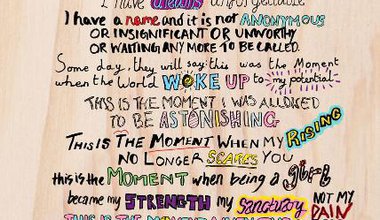 I have dreams unforgettable
I have a name and it is not ANONYMOUS
OR INSIGNIFICANT OR UNWORTHY
OR WAITING ANY MORE TO BE CALLED.
Some day, they will say: this was the Moment
when the World WOKE UP to my potential.
THIS IS THE MOMENT I WAS ALLOWED
TO BE ASTONISHING.
THIS IS THE MOMENT WHEN MY RISING
NO LONGER SCARES YOU
this is the MOMENT when being a girl
became my STRENGTH my sanctuary NOT MY PAIN
THIS IS THE MOMENT